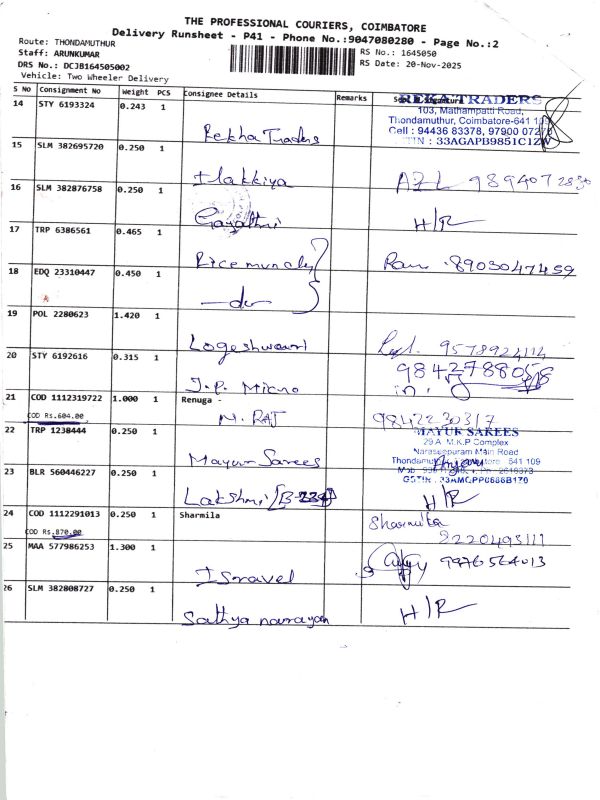 THE PROFESSIONAL COURIERS, COIMBATORE
Delivery Runsheet - P41 - Phone No.:9047080280 - Page No.:2
Route: THONDAMUTHUR
Staff: ARUNKUMAR
RS No.: 1645050
DRS No.: DCJB164505002
RS Date: 20-Nov-2025
Vehicle: Two Wheeler Delivery
S No Consignment No Weight PCS Consignee Details Remarks
14 STY 6193324 0.243 1 Rekha Traders
REKA TRADERS
103, Mathampatti Road,
Thondamuthur, Coimbatore-641 109
Cell : 94436 83378, 97900 07270
: 33AGAPB9851C1ZW
15 SLM 382695720 0.250 1 Ilakkiya 9894072830
16 SLM 382876758 0.250 1 Gayathri H/R
17 TRP 6386561 0.465 1 Rice mundy Ram 8903047459
18 EDQ 23310447 0.450 1 -do-
19 POL 2280623 1.420 1 Logeshwari 9578924114
20 STY 6192616 0.315 1 J.P. Micro 9842788058
21 COD 1112319722 1.000 1 Renuga - M. RAJ 9842230317
COD Rs.604.00
22 TRP 1238444 0.250 1 Mayur Sarees
MAYUR SAREES
29 A, M.K.P Complex
Narasipuram Main Road
641 109
23 BLR 560446227 0.250 1 Lakshmi H/R
24 COD 1112291013 0.250 1 Sharmila Sharmila
2220493111
COD Rs.870.00
25 MAA 577986253 1.300 1 Isravel 9976564013
26 SLM 382808727 0.250 1 Sathya narayan H/R